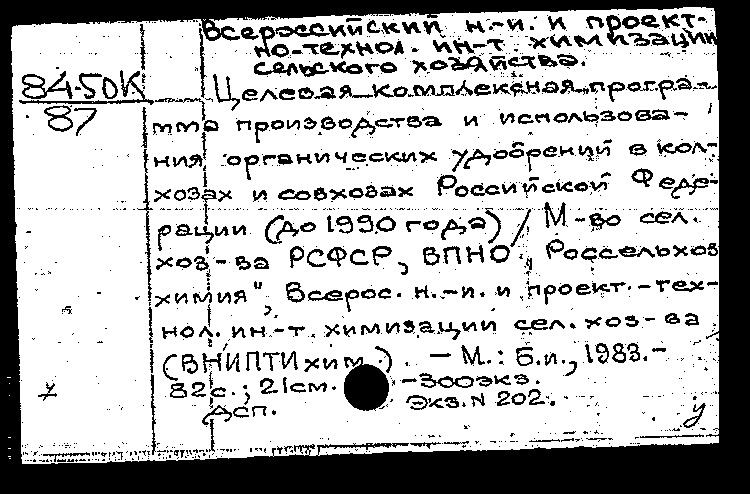 Всероссийский н.-и. и проект-
но-технол. ин-т химизации
сельского хозяйства.
84-50К
87
Целевая комплексная програ-
мма производства и использова-
ния органических удобрений в кол-
хозах и совхозах Российской Феде-
рации (до 1990 года) / М-во сел.
хоз-ва РСФСР, ВПНО „Россельхоз
химия", Всерос. н.-и. и проект.-тех-
нол. ин-т. химизации сел. хоз-ва
(ВНИПТИхим). - М.: Б.и., 1983.-
82с.; 21см. -300экз.
Дсп. Экз. N 202.
у
у